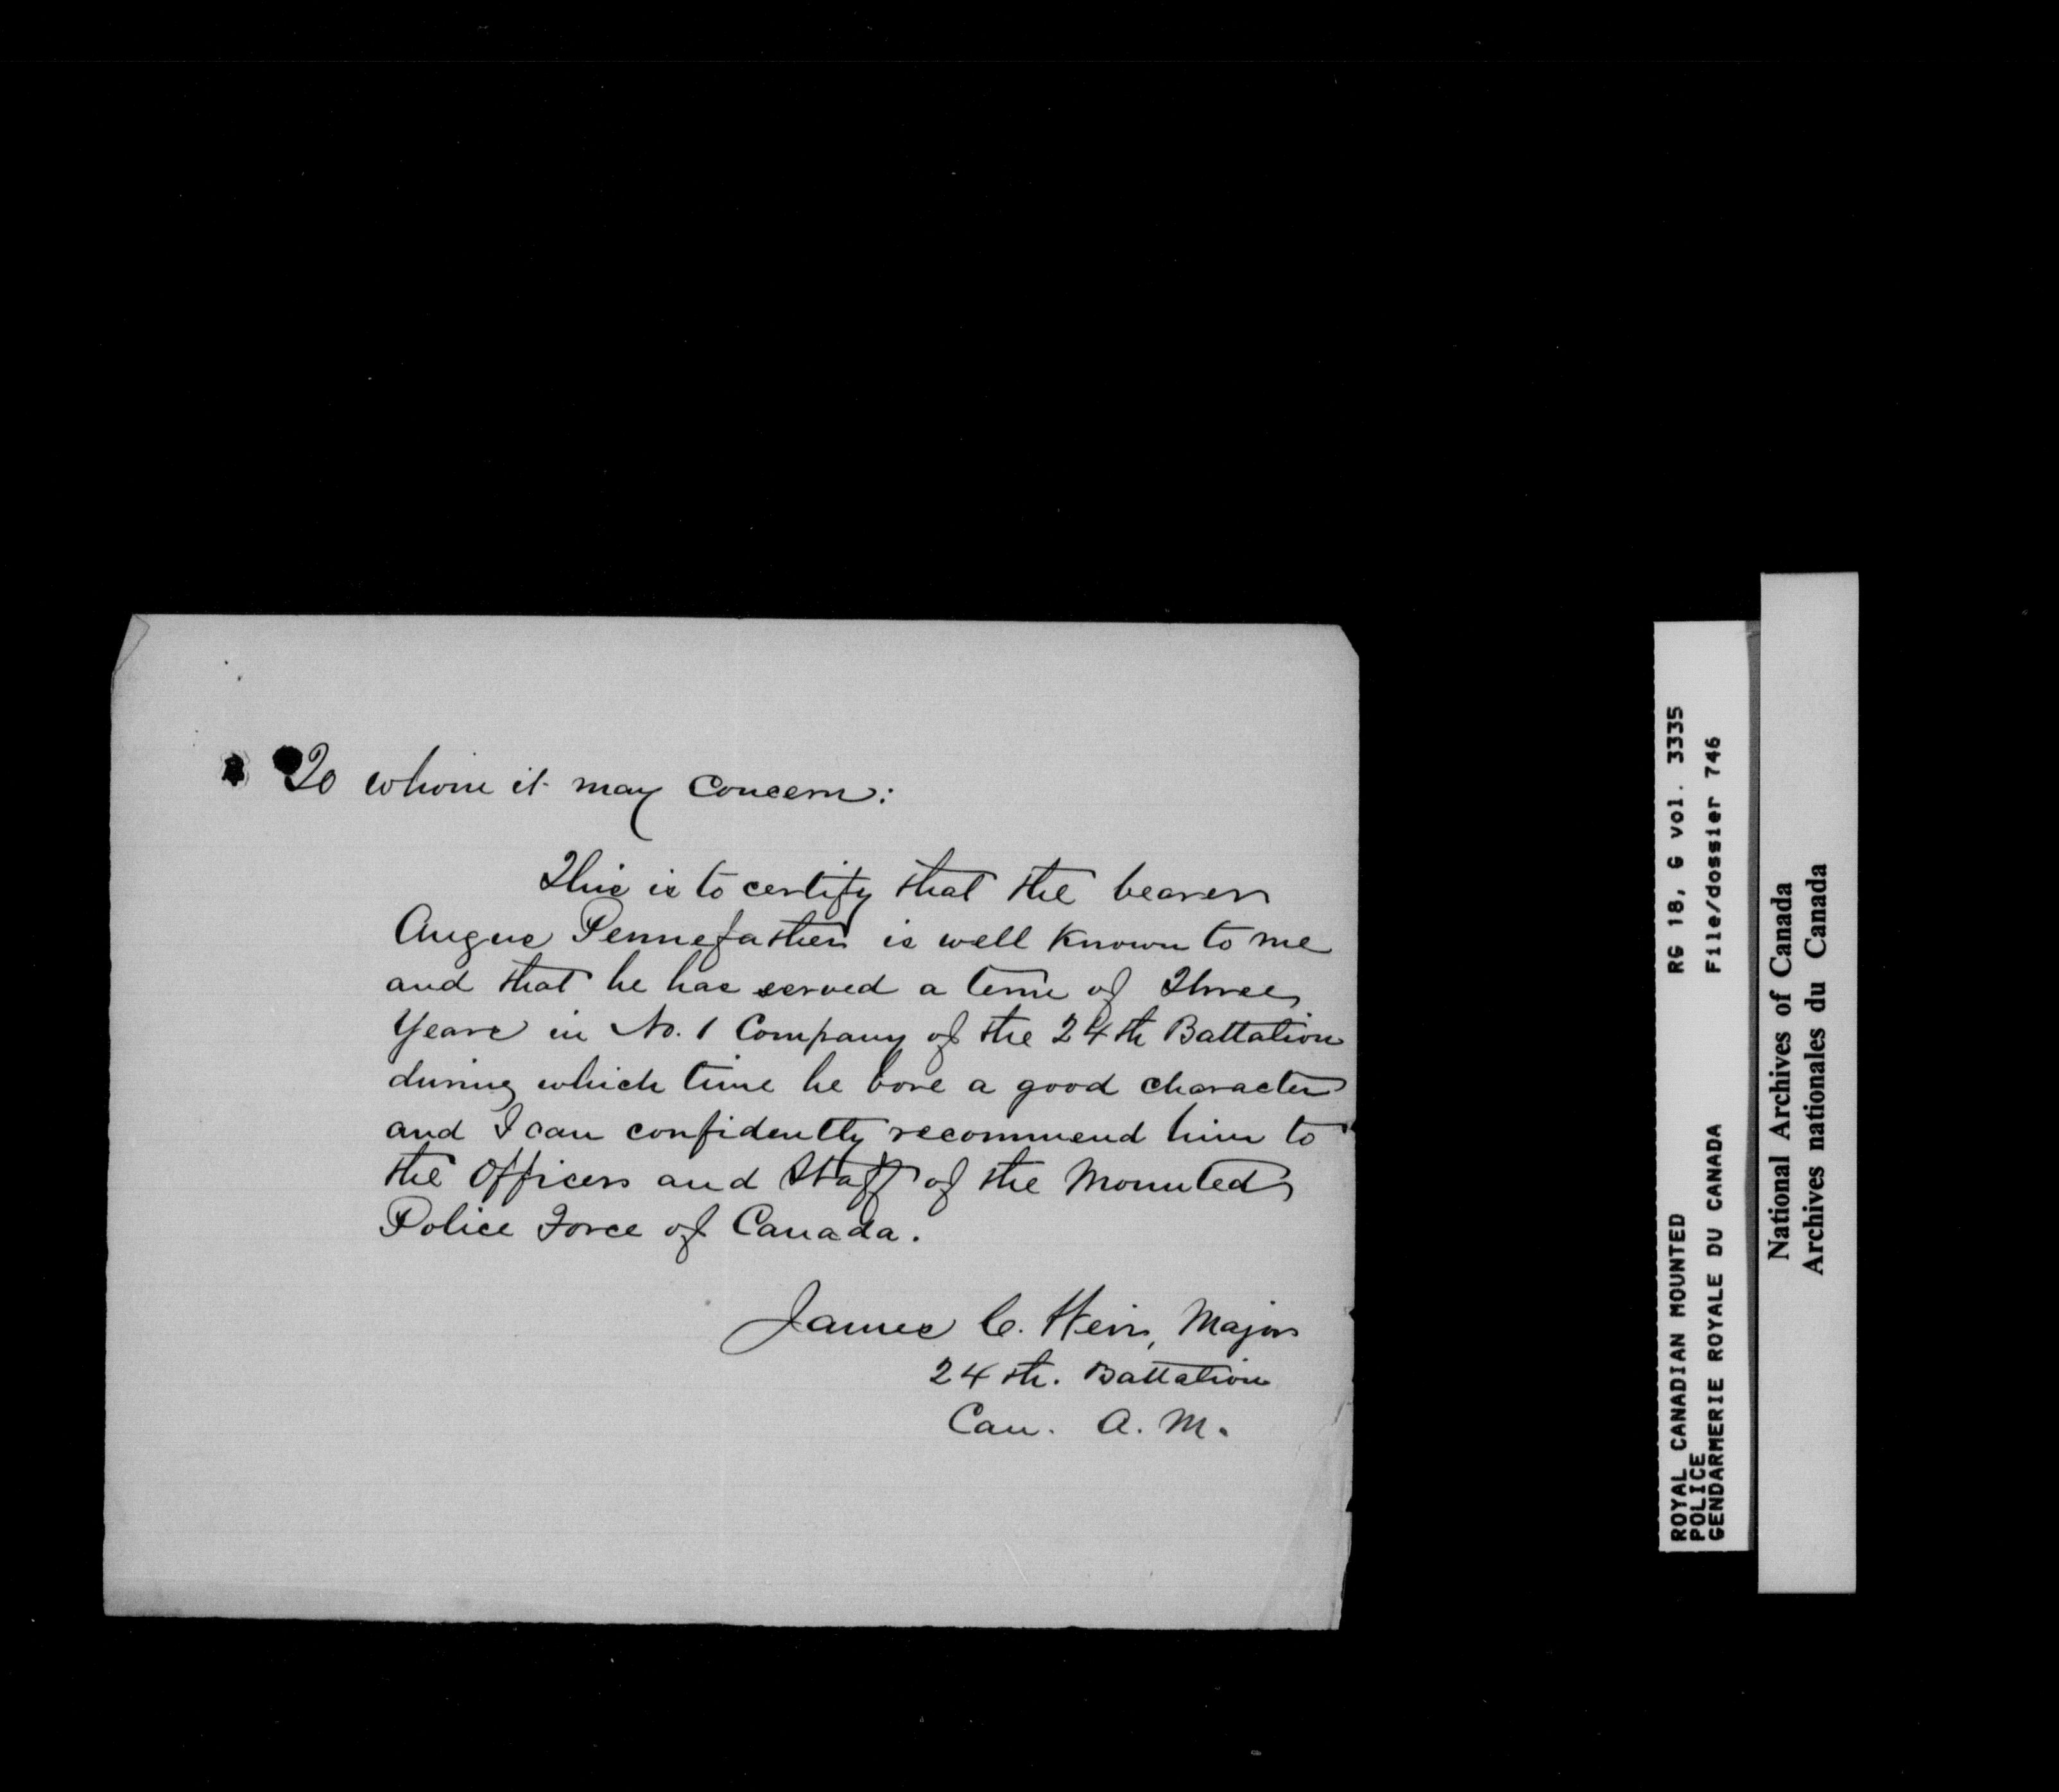 To whom it may concern:
This is to certify that the bearer
Angus Pennefather is well known to me
and that he has served a term of Three
Years in No. 1 Company of the 24th Battation
during which time he bore a good character
and I can confidently recommend him to
the Officers and Staff of the Mounted
Police Force of Canada.
James C. Weir, Major
24th. Battation
Can. A. M.
ROYAL CANADIAN MOUNTED RG 18, G vol. 3335
POLICE
GENDARMERIE ROYALE DU CANADA File/dossier 746
National Archives of Canada
Archives nationales du Canada